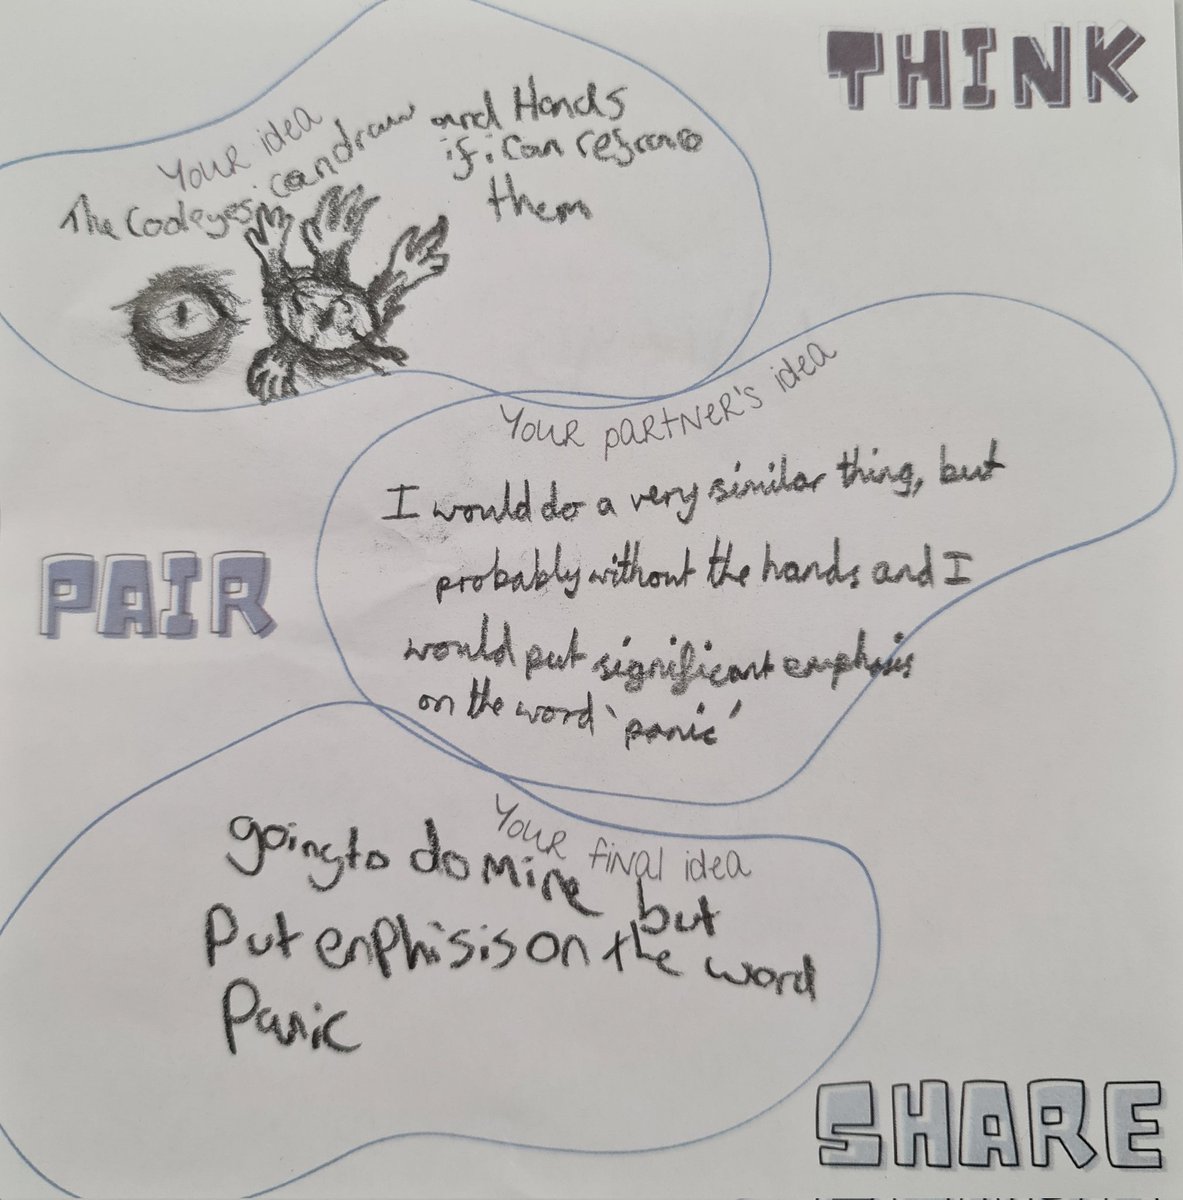 THINK
Your idea
The Cool eyes i can draw and Hands
if i can refrance
them
Your partner's idea
I would do a very similar thing, but
probably without the hands and I
would put significant emphsis
on the word 'panic'
PAIR
Your final idea
going to do mine but
Put enphisis on the word
Panic
SHARE